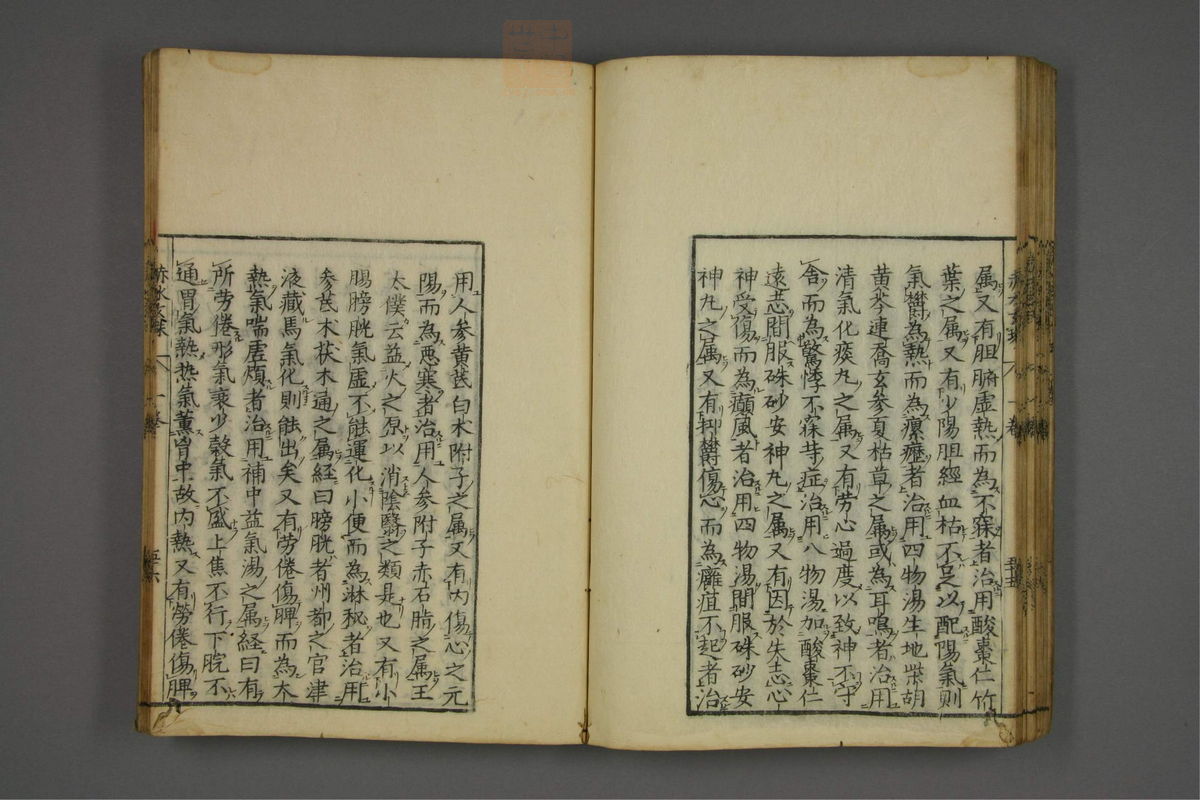 属又有胆腑虚熱而為不寐者治用酸棗仁竹
葉之属又有少陽胆經血枯不足以配陽氣則
氣欝為熱而為瘰癧者治用四物湯生地柴胡
黄芩連喬玄參夏枯草之属或為耳鳴者治用
清氣化痰丸之属又有労心過度以致神不守
舎而為驚悸不寐等症治用八物湯加酸棗仁
遠志間服硃砂安神丸之属又有因於失志心
神受傷而為癲風者治用四物湯間服硃砂安
神丸之属又有抑欝傷心而為癰疽不起者治
用人參黄芪白朮附子之属又有内傷心之元
陽而為悪寒者治用人參附子赤石脂之属王
太僕云益火之原以消陰翳之類是也又有小
腸膀胱氣虚不能運化小便而為淋秘者治用
參芪木茯木通之属経曰膀胱者州都之官津
液藏焉氣化則能出矣又有労倦傷脾而為大
熱氣喘虚煩者治用補中益氣湯之属経曰有
所労倦形氣衰少穀氣不盛上焦不行下脘不
通胃氣熱热氣薫胷中故内熱又有勞倦傷脾
赤水玄珠 一卷